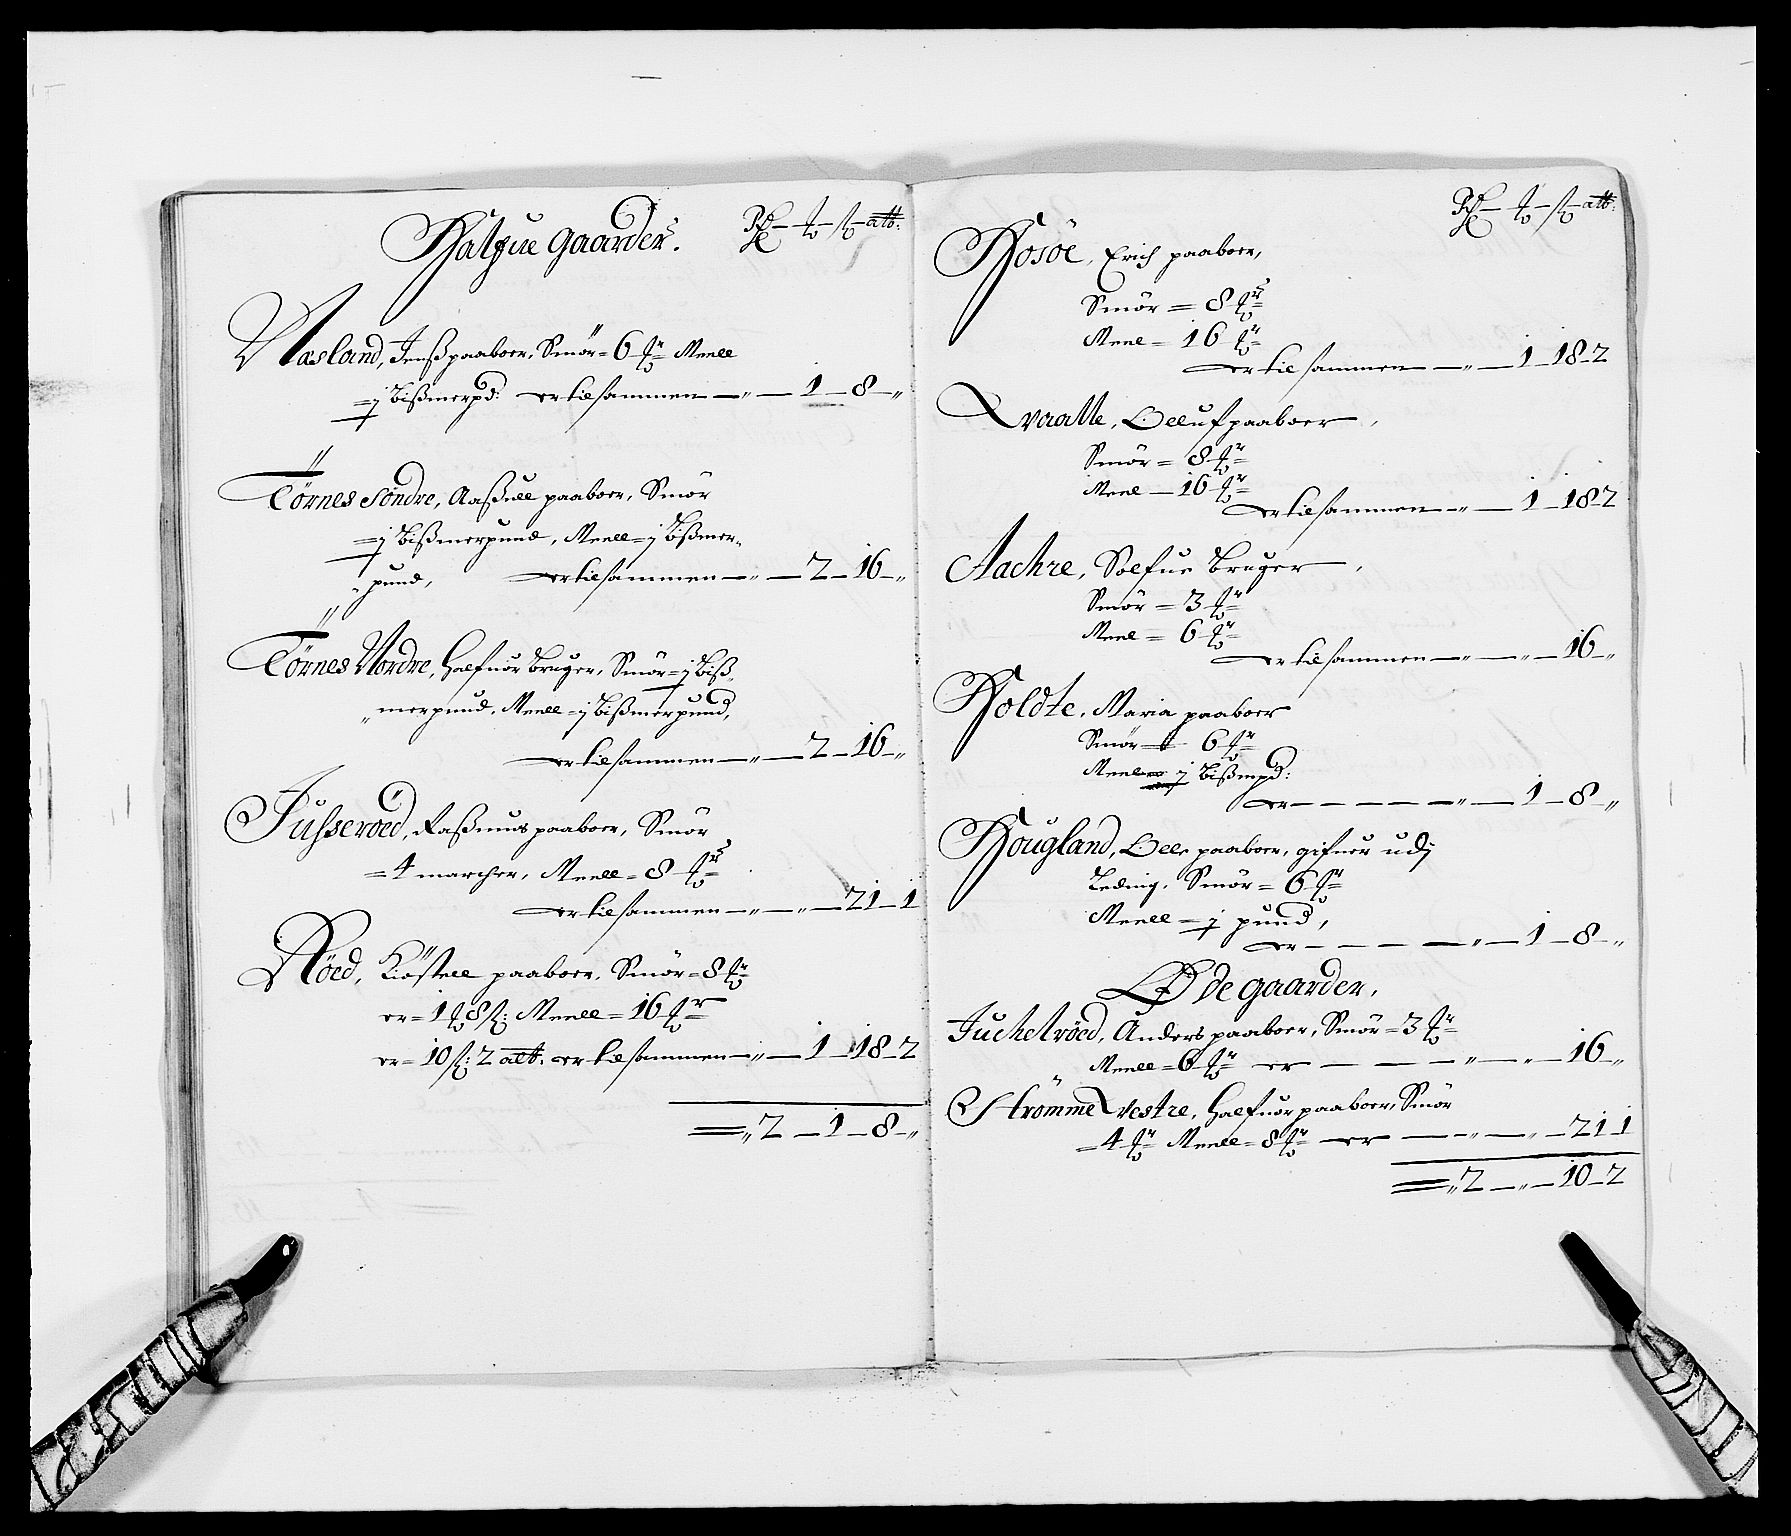 Halfue Gaarder. Rd — ℔ — ß — alb:
Nasland, Jenß paaboer, Smör = 6 ℔r Meell
= j Bißmerpd: er tilsammen — „ — 1 — 8 — „
Törnes Söndre, Aaßuell paaboer, Smör
= j Bißmerpund, Meell = j Bißmer-
pund, er tilsammen — „ — 2 — 16 — „
Törnes Nordre, Halfuor Bruger, Smör = j Biß-
merpund, Meell = j Bißmerpund,
er tilsammen — „ — 2 — 16 — „
Jusseröed, Raßmus paaboer, Smör
= 4 marcher, Meell = 8 ℔r
er tilsammen — „ — „ — 21 — 1
Röed, Kiöstell paaboer, Smör = 8 ℔r
er = 1 ℔ 8 ß: Meell = 16 ℔r
er = 10 ß: 2 alb: er tilsammen — „ — 1 — 18 — 2
= „ 2 — 1 — 8 — „
Rd — ℔ — ß — alb:
Hosöe, Erich paaboer,
Smör = 8 ℔r
Meel = 16 ℔r
er tilsammen — „ — 1 — 18 — 2
Qvaalle, Oelluf paaboer,
Smör = 8 ℔r
Meel — 16 ℔r
er tilsammen — „ — 1 — 18 — 2
Aachre, Solfue Bruger,
Smör = 3 ℔r
Meel = 6 ℔r
er tilsammen — „ — „ — 16 — „
Holdte, Maria paaboer
Smör — 6 ℔r
Meel j Bißmpd:
er — — — — — „ — 1 — 8 — „
Hougland, Oelle paaboer, gifuer udj
Leding, Smör = 6 ℔r
Meell = j pund,
er — — — — „ — 1 — 8 — „
Øde gaarder,
Juchelröed, Anders paaboer, Smör = 3 ℔r
Meell = 6 ℔r er — — — „ — „ — 16 — „
Strömme Vestre, Halfuor paaboer, Smör
= 4 ℔r Meell = 8 ℔r er — — „ — „ — 21 1
= „ 2 — „ — 10 — 2